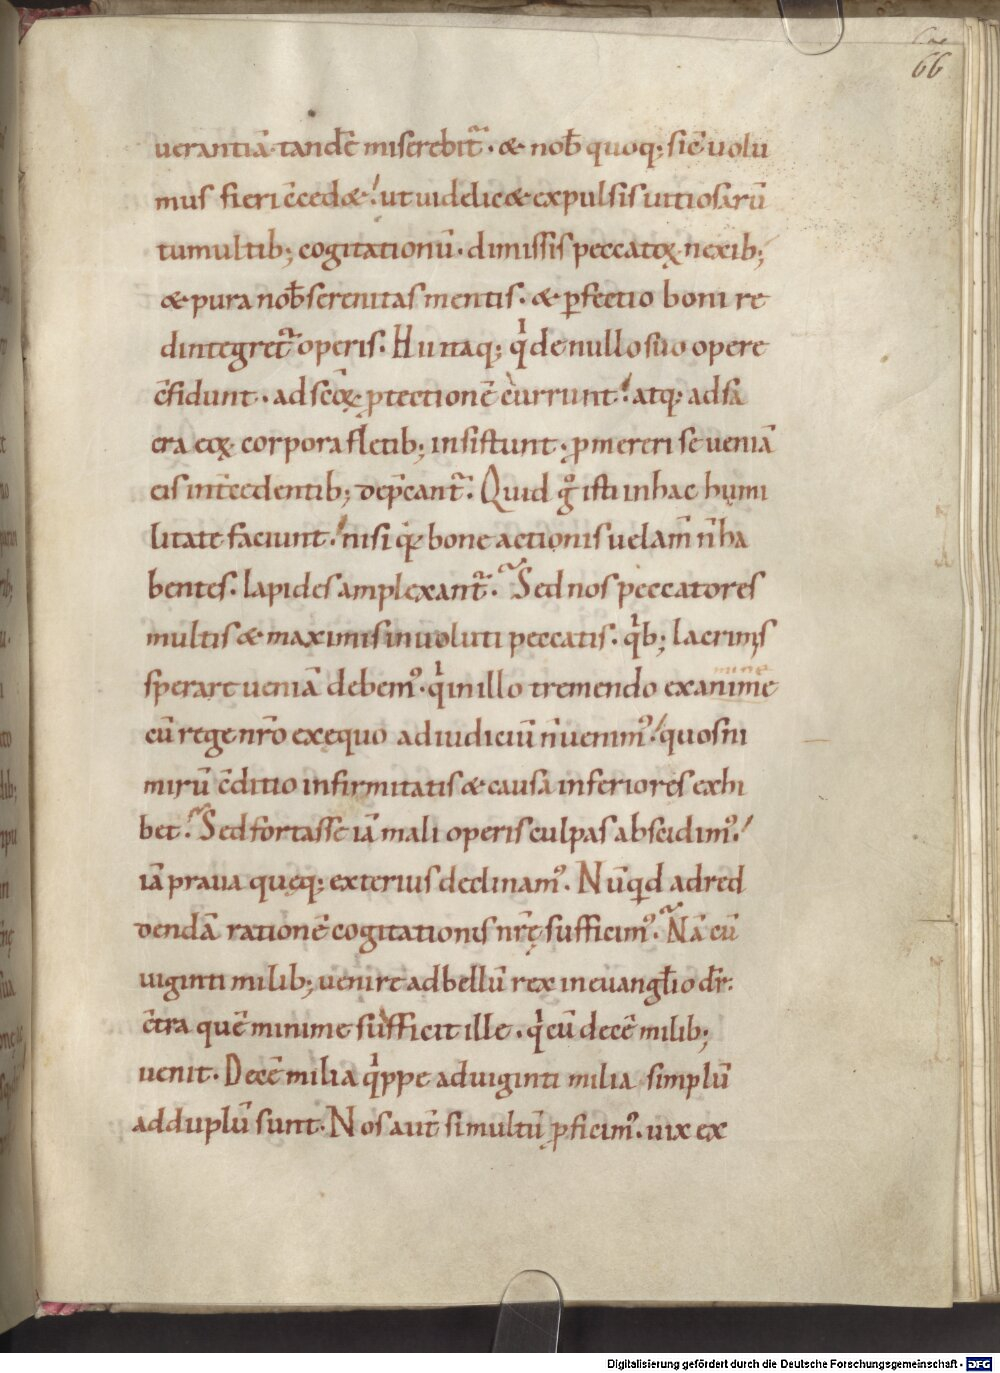 66
uerantiā tandē miserebit᷑. & nob̄ quoq; sic̄ uolu
mus fieri c̄ced&. ut uidelic& expulsis uitiosarū
tumultib; cogitationū. dimissis peccatoꝝ nexib;
& pura nob̄ serenitas mentis. & ꝑfectio boni re
dintegret᷑ operis. Hi itaq; qͥ de nullo suo opere
c̄fidunt. ad sc̄oꝝ ꝓtectionē currunt. atq; ad sa
cra eoꝝ corpora fletib; insistunt. ꝓmereri se ueniā
eis int̄cedentib; dep̄cant᷑. Quid gͦ isti in hac humi
litate faciunt. nisi qͥa bone actionis uelam̄ n̄ ha
bentes. lapides amplexant᷑. Sed nos peccatores
multis & maximis inuoluti peccatis. qͥb; lacrimis
sperare ueniā debem᷒. qͥ in illo tremendo examine
mine
cū rege nr̄o ex equo ad iudiciū n̄ uenim᷒. quos ni
mirū c̄ditio infirmitatis & causa inferiores exhi
bet. Sed fortasse iā mali operis culpas abscidim᷒.
iā praua quęq; exterius declinam᷒. Nūqd ad red
dendā rationē cogitationis nr̄ę sufficim᷒. Nā cū
uiginti milib; uenire ad bellū rex in euangl̄io dr̄.
c̄tra quē minime sufficit ille. qͥ cū decē milib;
uenit. Decē milia qͥppe ad uiginti milia simplū
ad duplū sunt. Nos aut̄ si multū ꝓficim᷒. uix ex
Digitalisierung gefördert durch die Deutsche Forschungsgemeinschaft - DFG